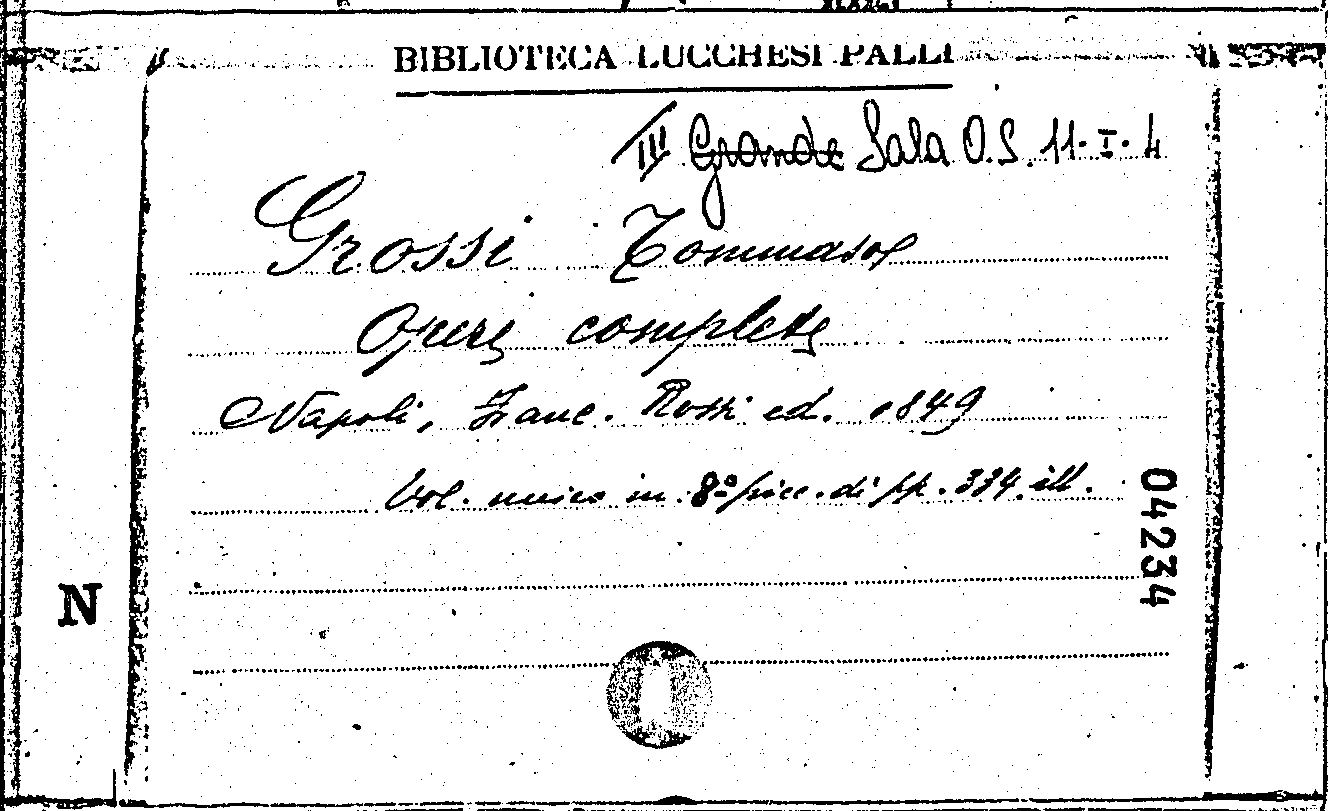 BIBLIOTECA LUCCHESI PALLI
III Grande Sala O.S. 11-I-4
Grossi Tommaso
Opere complete
Napoli, Franc. Rossi ed. 1849
Vol. unico in 8º picc. di pp. 334. ill.
04234
N